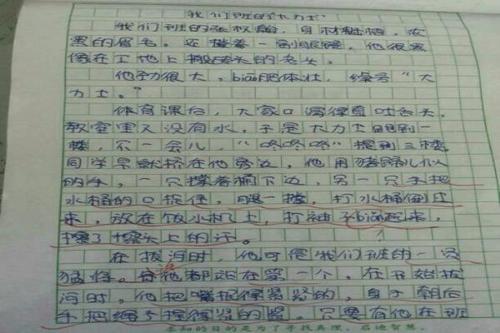 我们班的大力士
我们班的张权, 身材魁梧, 浓
黑的眉毛。还撑着一副眼镜, 他很像
像在工地上搬砖头的老头。
他力很大, biao肥体壮, 绰号“大
力士。”
体育课后, 大家口渴得直吐舌头,
教室里又没有水, 于是大力士跑到一
楼, 不一会儿, “咚咚咚”提到三楼,
同学早就挤在他旁边, 他用猪蹄儿似
的手, 一只撑着桶下边, 另一只手把
水桶的口捉住, 腿一搂, 打水桶倒过
来, 放在饮水机上, 打袖子biao起来,
擦了擦头上的汗。
在拔河时, 他可是我们班的一员
猛将。每他都站在第一个, 在开始拔
河时, 他把嘴抿得紧紧的, 身子朝后
手把绳子捏得紧的, 只要有他在班
求知的目的是为了寻找真理, 启迪智慧。